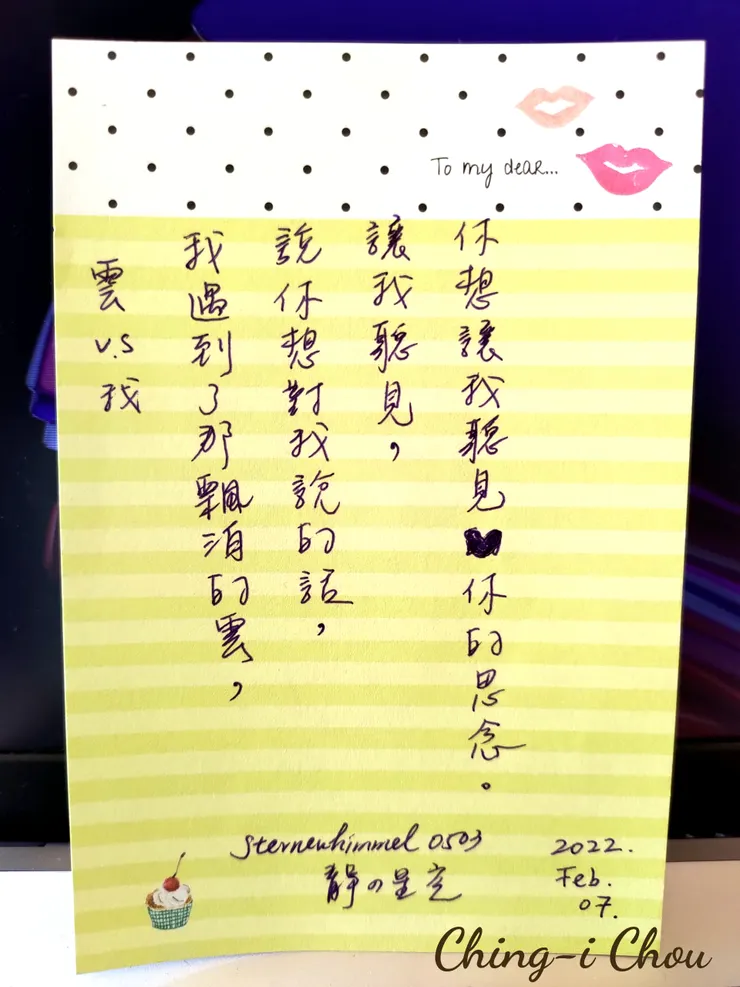 To my dear...
雲 v.s 我
我遇到了那飄泊的雲，
說你想對我說的話，
讓我聽見，
你想讓我聽見♥你的思念。
Sternenhimmel 0503
靜の星空
2022.
Feb.
07.
Ching-i Chou